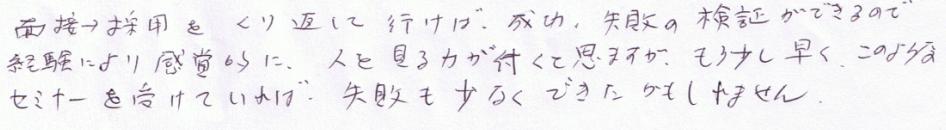 面接→採用を くり返して 行けば、成功、失敗の 検証ができるので
経験により 感覚的に、人を 見る力が付くと思ますが、もう少し早く、このような
セミナーを受けていれば、失敗も 少なくできたかもしれません。